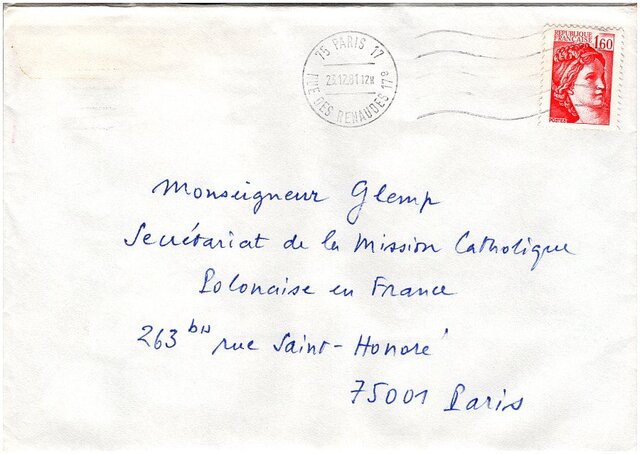 75 PARIS 17
23.12.81 12H
RUE DES RENAUDES 17e
REPUBLIQUE
FRANCAISE
1,60
POSTES
Monseigneur Glemp
Secrétariat de la Mission Catholique
Polonaise en France
263 bis rue Saint-Honoré
75001 Paris